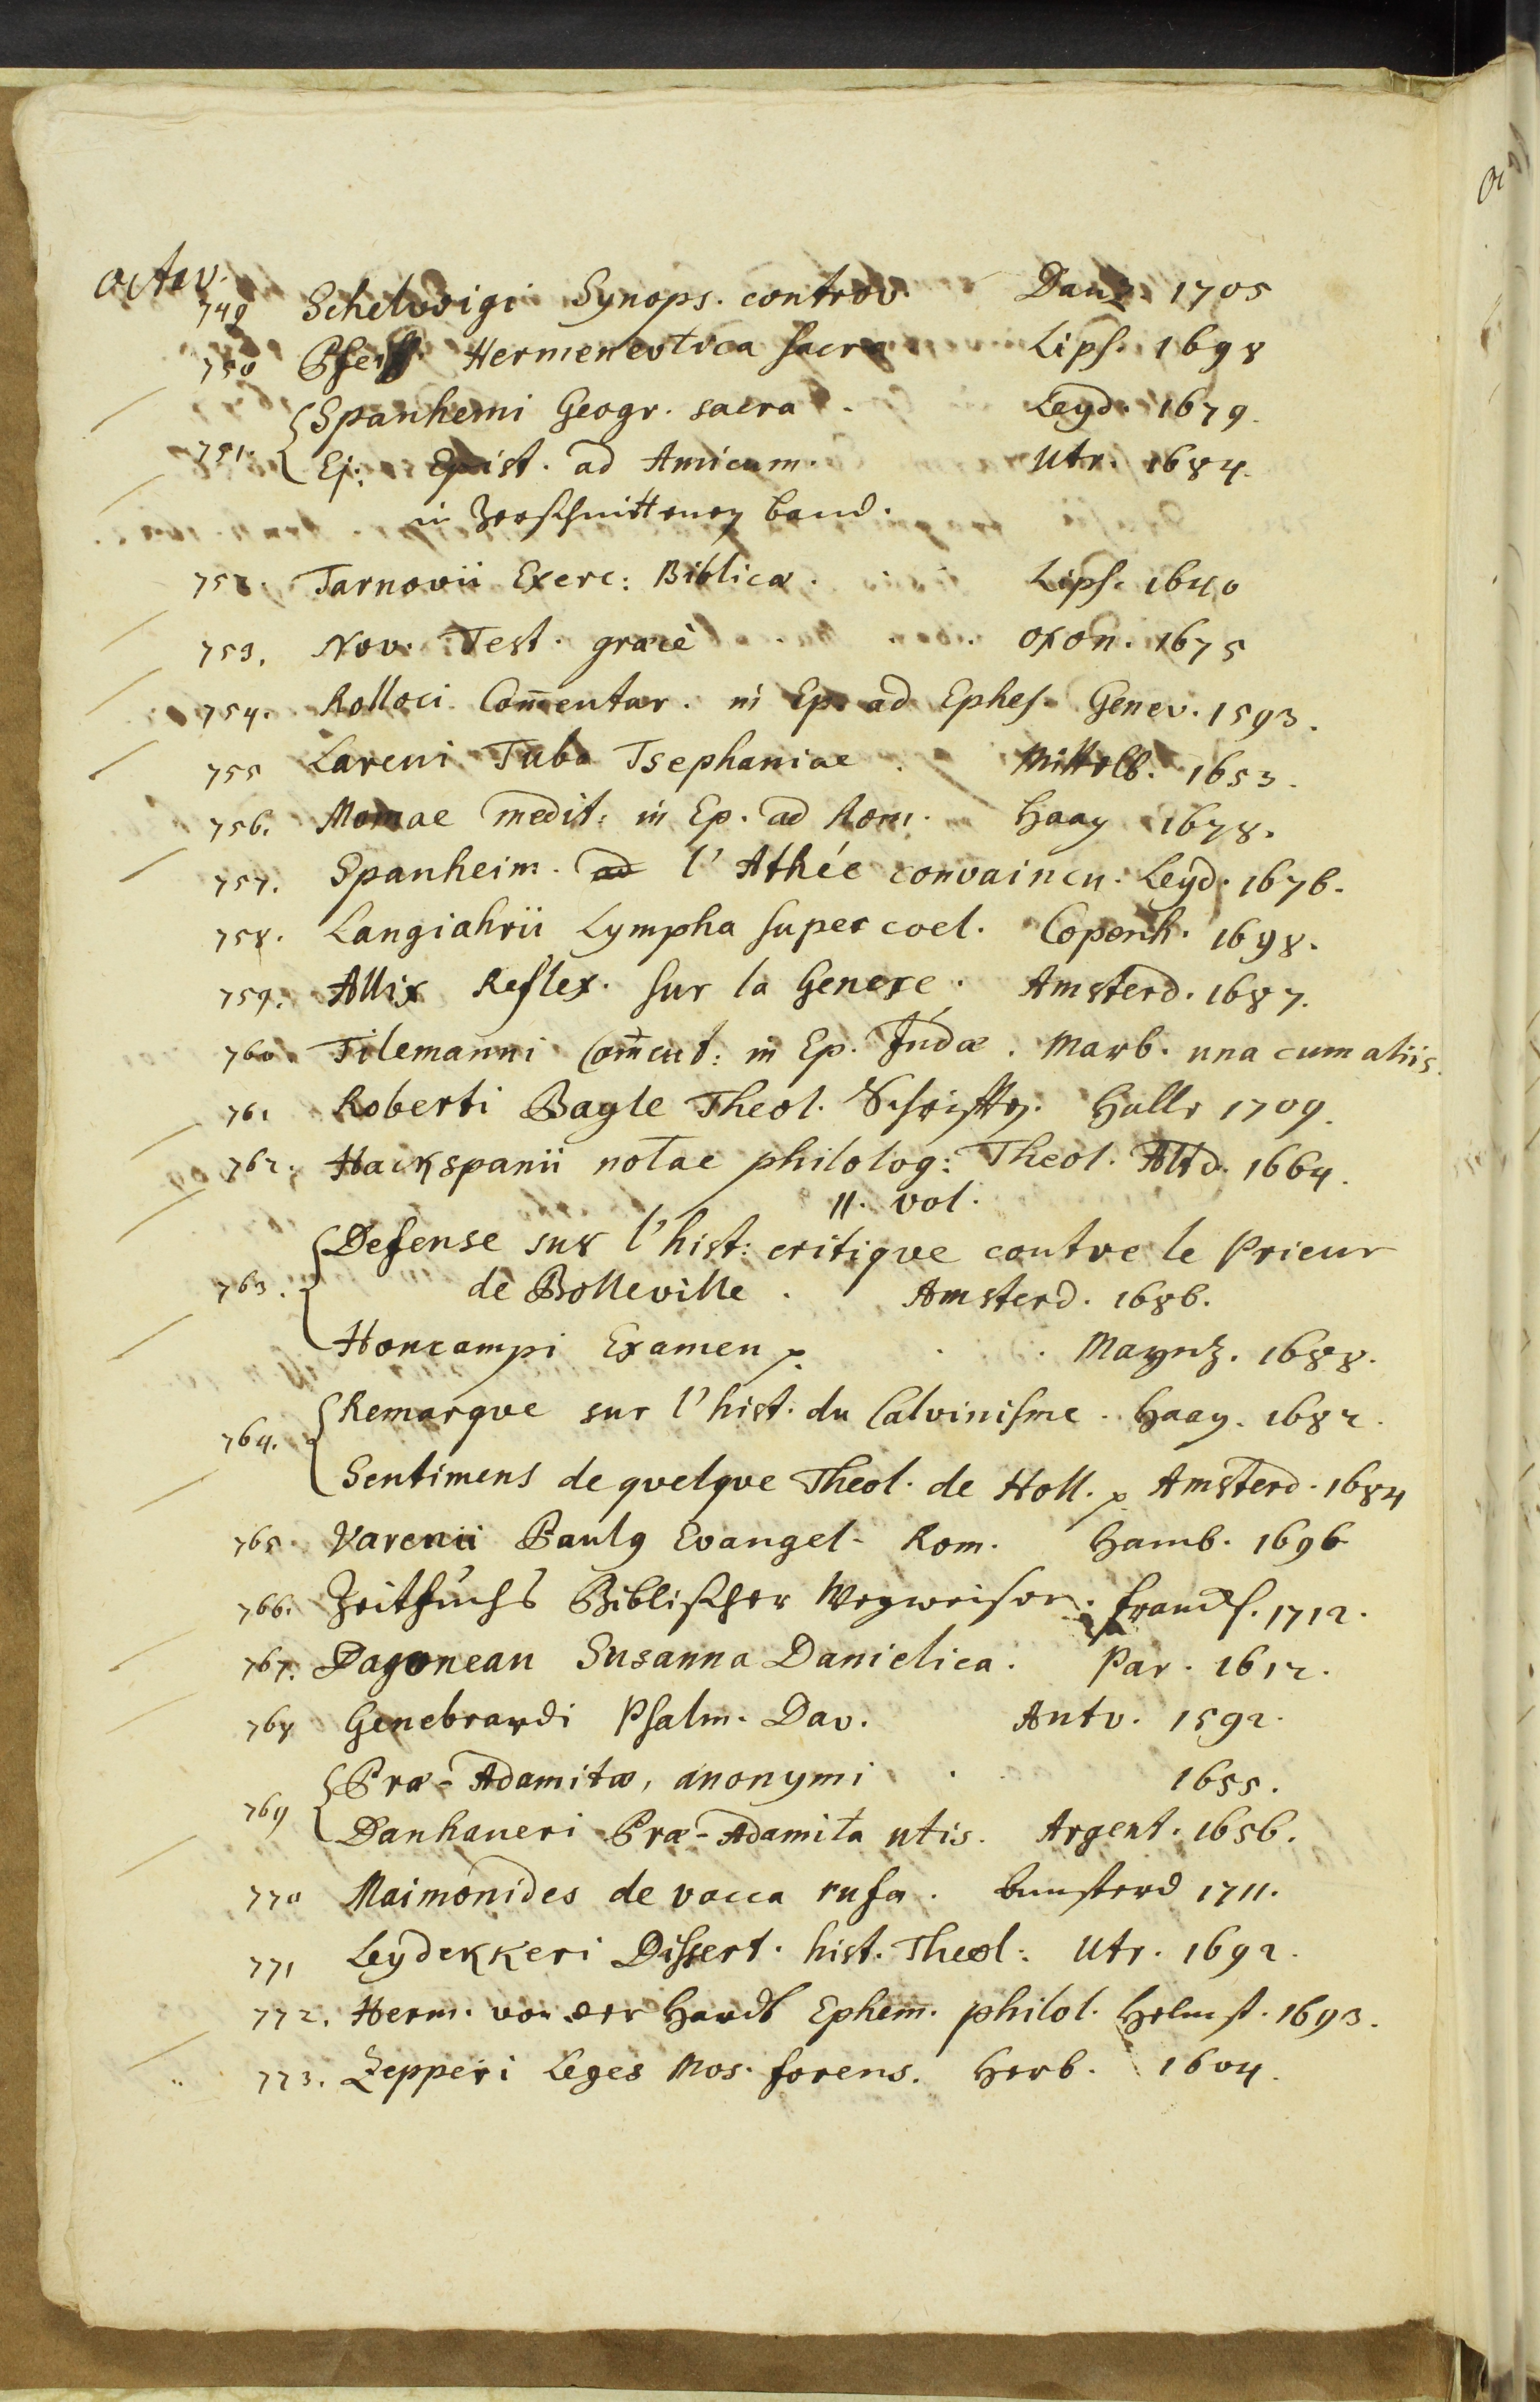 octav.
749 Schelwigi Synops. controv. Danz. 1705
750 Pfeiff. Hermenevtica sacra Lips. 1698
Spanhemi Geogr. sacra . Leyd. 1679.
751. Ej: Epist. ad Amicum. Utr. 1684.
in Zerschnittenen band.
752. Tarnovii Exerc: Biblicæ . Lips. 1640
753. Nov. Test. græcè . . . oxon. 1675
754. Rolloci Com̄entar. in Ep. ad Ephes. Genev. 1593.
755 Lareni Tuba Tsephaniae . Mittelb. 1653.
756. Momae medit: in Ep. ad Rom. Haag 1678.
757. Spanheim. l'Athée convaincu. Leyd. 1676.
758. Langiahrii Lympha super coel. Copenh. 1698.
759. Allix Reflex. sur la Genese . Amsterd. 1687.
760. Tilemanni Com̄ent: in Ep. Judæ . Marb. una cum aliis.
761 Roberti Bagle Theol. Schrifften. Halle 1709.
762. Hackspanii notae philolog: Theol. Altd. 1664.
11. vol.
Defense sur l'hist: critiqve contre le Prieur
763. de Bolleville . Amsterd. 1686.
Honcampi Examen p. . . Maynz. 1688.
Remarqve sur l'hist. du Calvinisme . Haag. 1682.
764.
Sentimens de qvelqve Theol. de Holl. p Amsterd. 1684
765. Varenii Paulg Evangel. Rom. Hamb. 1696
766. Zeitfuchs Biblischer Wegweiser. franckf. 1712.
767. Dagonean Susanna Danielica. Par. 1612.
768 Genebrardi Psalm. Dav. Antv. 1592.
Præ-Adamitæ, anonymi . . 1655.
769
Danhaueri Præ-Adamita utis. Argent. 1656.
770 Maimonides de vacca rufa . Amsterd 1711.
771 Leydekkeri Dissert. hist. Theol: Utr. 1692.
772. Herm. von der Hardt Ephem. philol. Helmst. 1693.
773. Zepperi Leges Mos. forens. Herb. 1604.